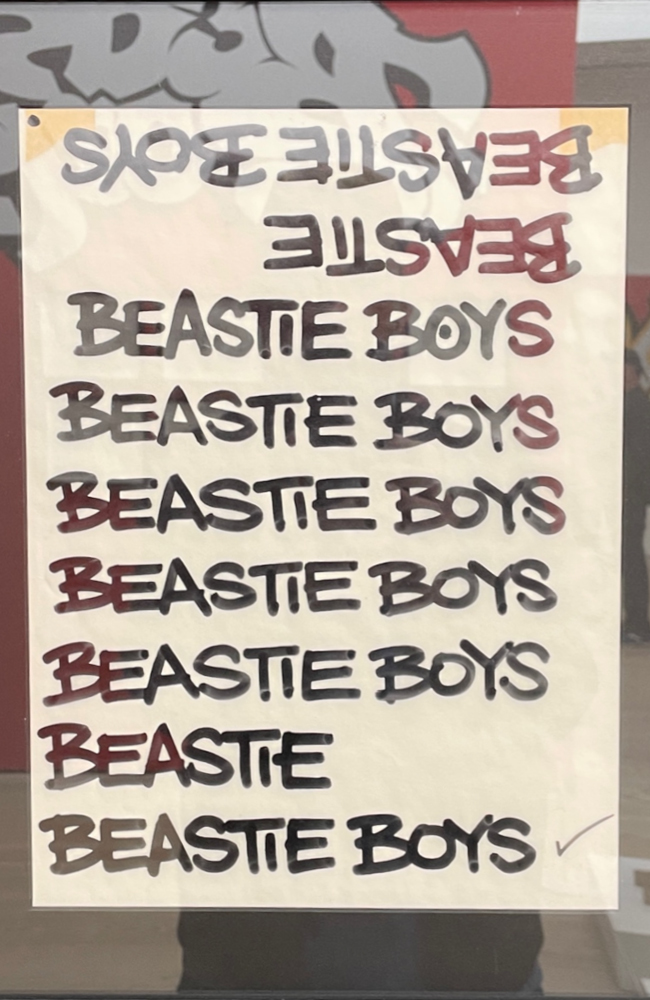 BEASTIE BOYS
BEASTIE
BEASTIE BOYS
BEASTIE BOYS
BEASTIE BOYS
BEASTIE BOYS
BEASTIE BOYS
BEASTIE
BEASTIE BOYS